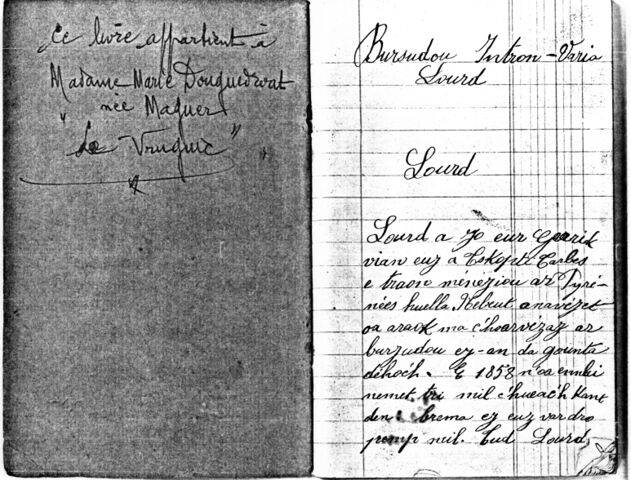 Ce livre appartient à
Madame Marie
née Maguer
"Le
Bursudou Intron-Varia
Lourd
Lourd
Lourd a zo eur Gearik
vian euz a Eskopti Tarbes
e traon méneziou ar Pyré-
nées huella Nebeut anavézet
oa araok ma c'hoarvézaz ar
burzudou ez-an da gounta
déhoc'h. E 1858 n'oa enhi
nemet tri mil c'hueac'h kant
den brema ez euz var dro
pemp mil. Tud Lourd,